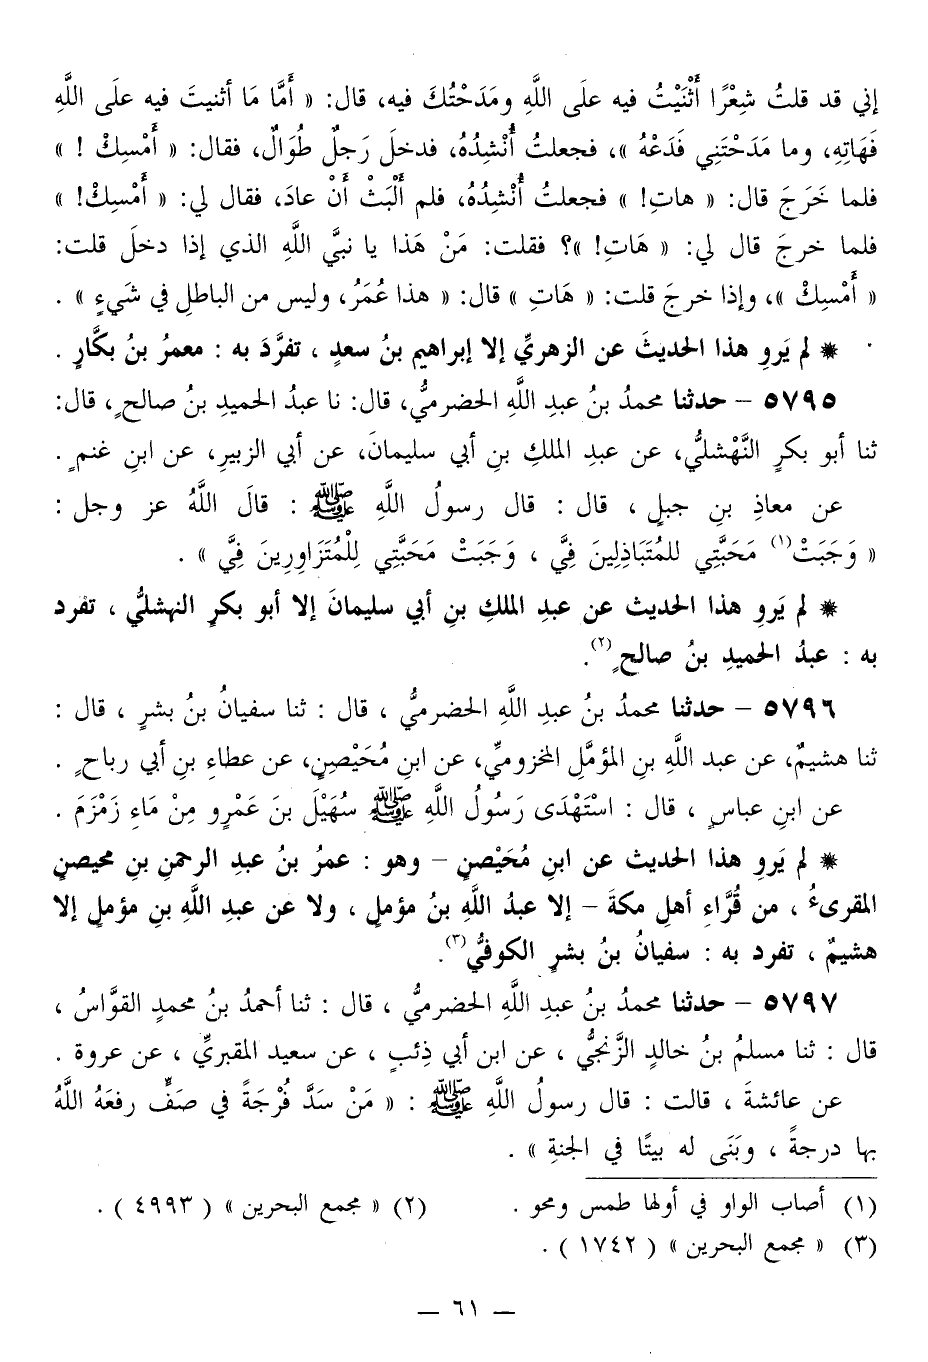 إني قد قلتُ شِعْرًا أَثْنَيْتُ فيه علَى اللَّهِ ومَدَحْتُكَ فيه، قال: « أَمَّا مَا أثنيتَ فيه علَى اللَّهِ
فَهَاتِهِ، وما مَدَحْتَنِي فَدَعْهُ »، فجعلتُ أُنْشِدُهُ، فدخلَ رَجلٌ طُوَالٌ، فقال: « أَمْسِكْ ! »
فلما خَرَجَ قال: « هاتِ! » فجعلتُ أُنْشِدُهُ، فلم أَلْبَثْ أَنْ عادَ، فقال لي: « أَمْسِكْ! »
فلما خرجَ قال لي: « هَاتِ! »؟ فقلت: مَنْ هَذا يا نبيَّ اللَّهِ الذي إذا دخلَ قلت:
« أَمْسِكْ »، وإذا خرجَ قلت: « هَاتِ » قال: « هذا عُمَرُ، وليس من الباطلِ في شَيءٍ » .
* لم يَروِ هذا الحديثَ عن الزهريِّ إلا إبراهيم بنُ سعدٍ ، تفرَّدَ به : معمرُ بنُ بكَّارٍ .
٥٧٩٥ – حدثنا محمدُ بنُ عبدِ اللَّهِ الحضرميُّ، قال: نا عبدُ الحميدِ بنُ صالحٍ، قال:
ثنا أبو بكرٍ النَّهْشليُّ، عن عبدِ الملكِ بنِ أبي سليمانَ، عن أبي الزبيرِ، عن ابنِ غنمٍ .
عن معاذِ بنِ جبلٍ ، قال : قال رسولُ اللَّهِ ﷺ : قالَ اللَّهُ عز وجل :
« وَجَبَتْ(١) مَحَبَّتِي للمُتَبَاذِلِينَ فِيَّ ، وَجَبَتْ مَحَبَّتِي لِلْمُتَزَاوِرِينَ فِيَّ » .
* لم يَروِ هذا الحديث عن عبدِ الملكِ بنِ أبي سليمانَ إلا أبو بكرٍ النهشليُّ ، تفرد
به : عبدُ الحميدِ بنُ صالحٍ(٢).
٥٧٩٦ – حدثنا محمدُ بنُ عبدِ اللَّهِ الحضرميُّ ، قال : ثنا سفيانُ بنُ بشرٍ ، قال :
ثنا هشيمٌ، عن عبد اللَّهِ بنِ المؤمَّلِ المخزوميِّ، عن ابنِ مُحَيْصِنٍ، عن عطاءِ بنِ أبي رباحٍ .
عن ابنِ عباسٍ ، قال : اسْتَهْدَى رَسولُ اللَّهِ ﷺ سُهَيْلَ بنَ عَمْرٍو مِنْ مَاءِ زَمْزَمَ .
* لم يَروِ هذا الحديث عن ابنِ مُحَيْصنٍ – وهو : عمرُ بنُ عبدِ الرحمنِ بنِ محيصنٍ
المقرىءُ ، من قُرَّاءِ أهلِ مكةَ – إلا عبدُ اللَّهِ بنُ مؤملٍ ، ولا عن عبدِ اللَّهِ بنِ مؤملٍ إلا
هشيمٌ ، تفرد به : سفيانُ بنُ بشرٍ الكوفيُّ(٣).
٥٧٩٧ – حدثنا محمدُ بنُ عبدِ اللَّهِ الحضرميُّ ، قال : ثنا أحمدُ بنُ محمدٍ القوَّاسُ ،
قال : ثنا مسلمُ بنُ خالدٍ الزَّنجيُّ ، عن ابن أبي ذِئبٍ ، عن سعيد المقبريِّ ، عن عروة .
عن عائشةَ ، قالت : قال رسولُ اللَّهِ ﷺ : « مَنْ سَدَّ فُرْجَةً في صَفٍّ رفعَهُ اللَّهُ
بها درجةً ، وبَنَى له بيتًا في الجنةِ » .
(١) أصاب الواو في أولها طمس ومحو . (٢) « مجمع البحرين » ( ٤٩٩٣ ) .
(٣) « مجمع البحرين » ( ١٧٤٢ ) .
— ٦١ —